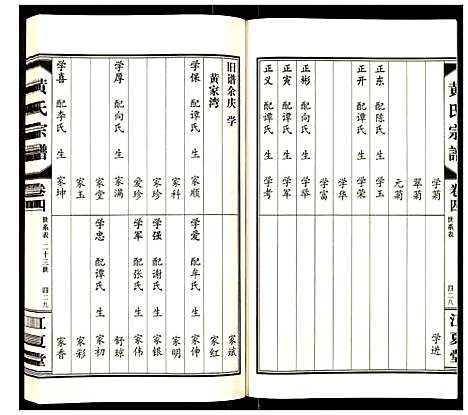 黄氏宗譜
卷四
世系表
四二八
江夏堂
学菊
翠菊
元菊
正东 配陈氏 生 学玉
正开 配谭氏 生 学荣
学华
学富
正彬 配向氏 生 学华
正寅 配谭氏 生 学军
正义 配谭氏 生 学考
学进
旧谱余庆 学
黄家湾
学保 配谭氏 生 家顺
家科
家珍
爱珍
学厚 配向氏 生 家满
家堂
家玉
学喜 配李氏 生 家坤
家斌
家红
学爱 配牟氏 生 家伸
家明
学强 配谢氏 生 家银
学军 配张氏 生 家伟
舒琼
学忠 配谭氏 生 家初
家彩
家香
黄氏宗譜
卷四
世系表 二十三世
四二九
江夏堂